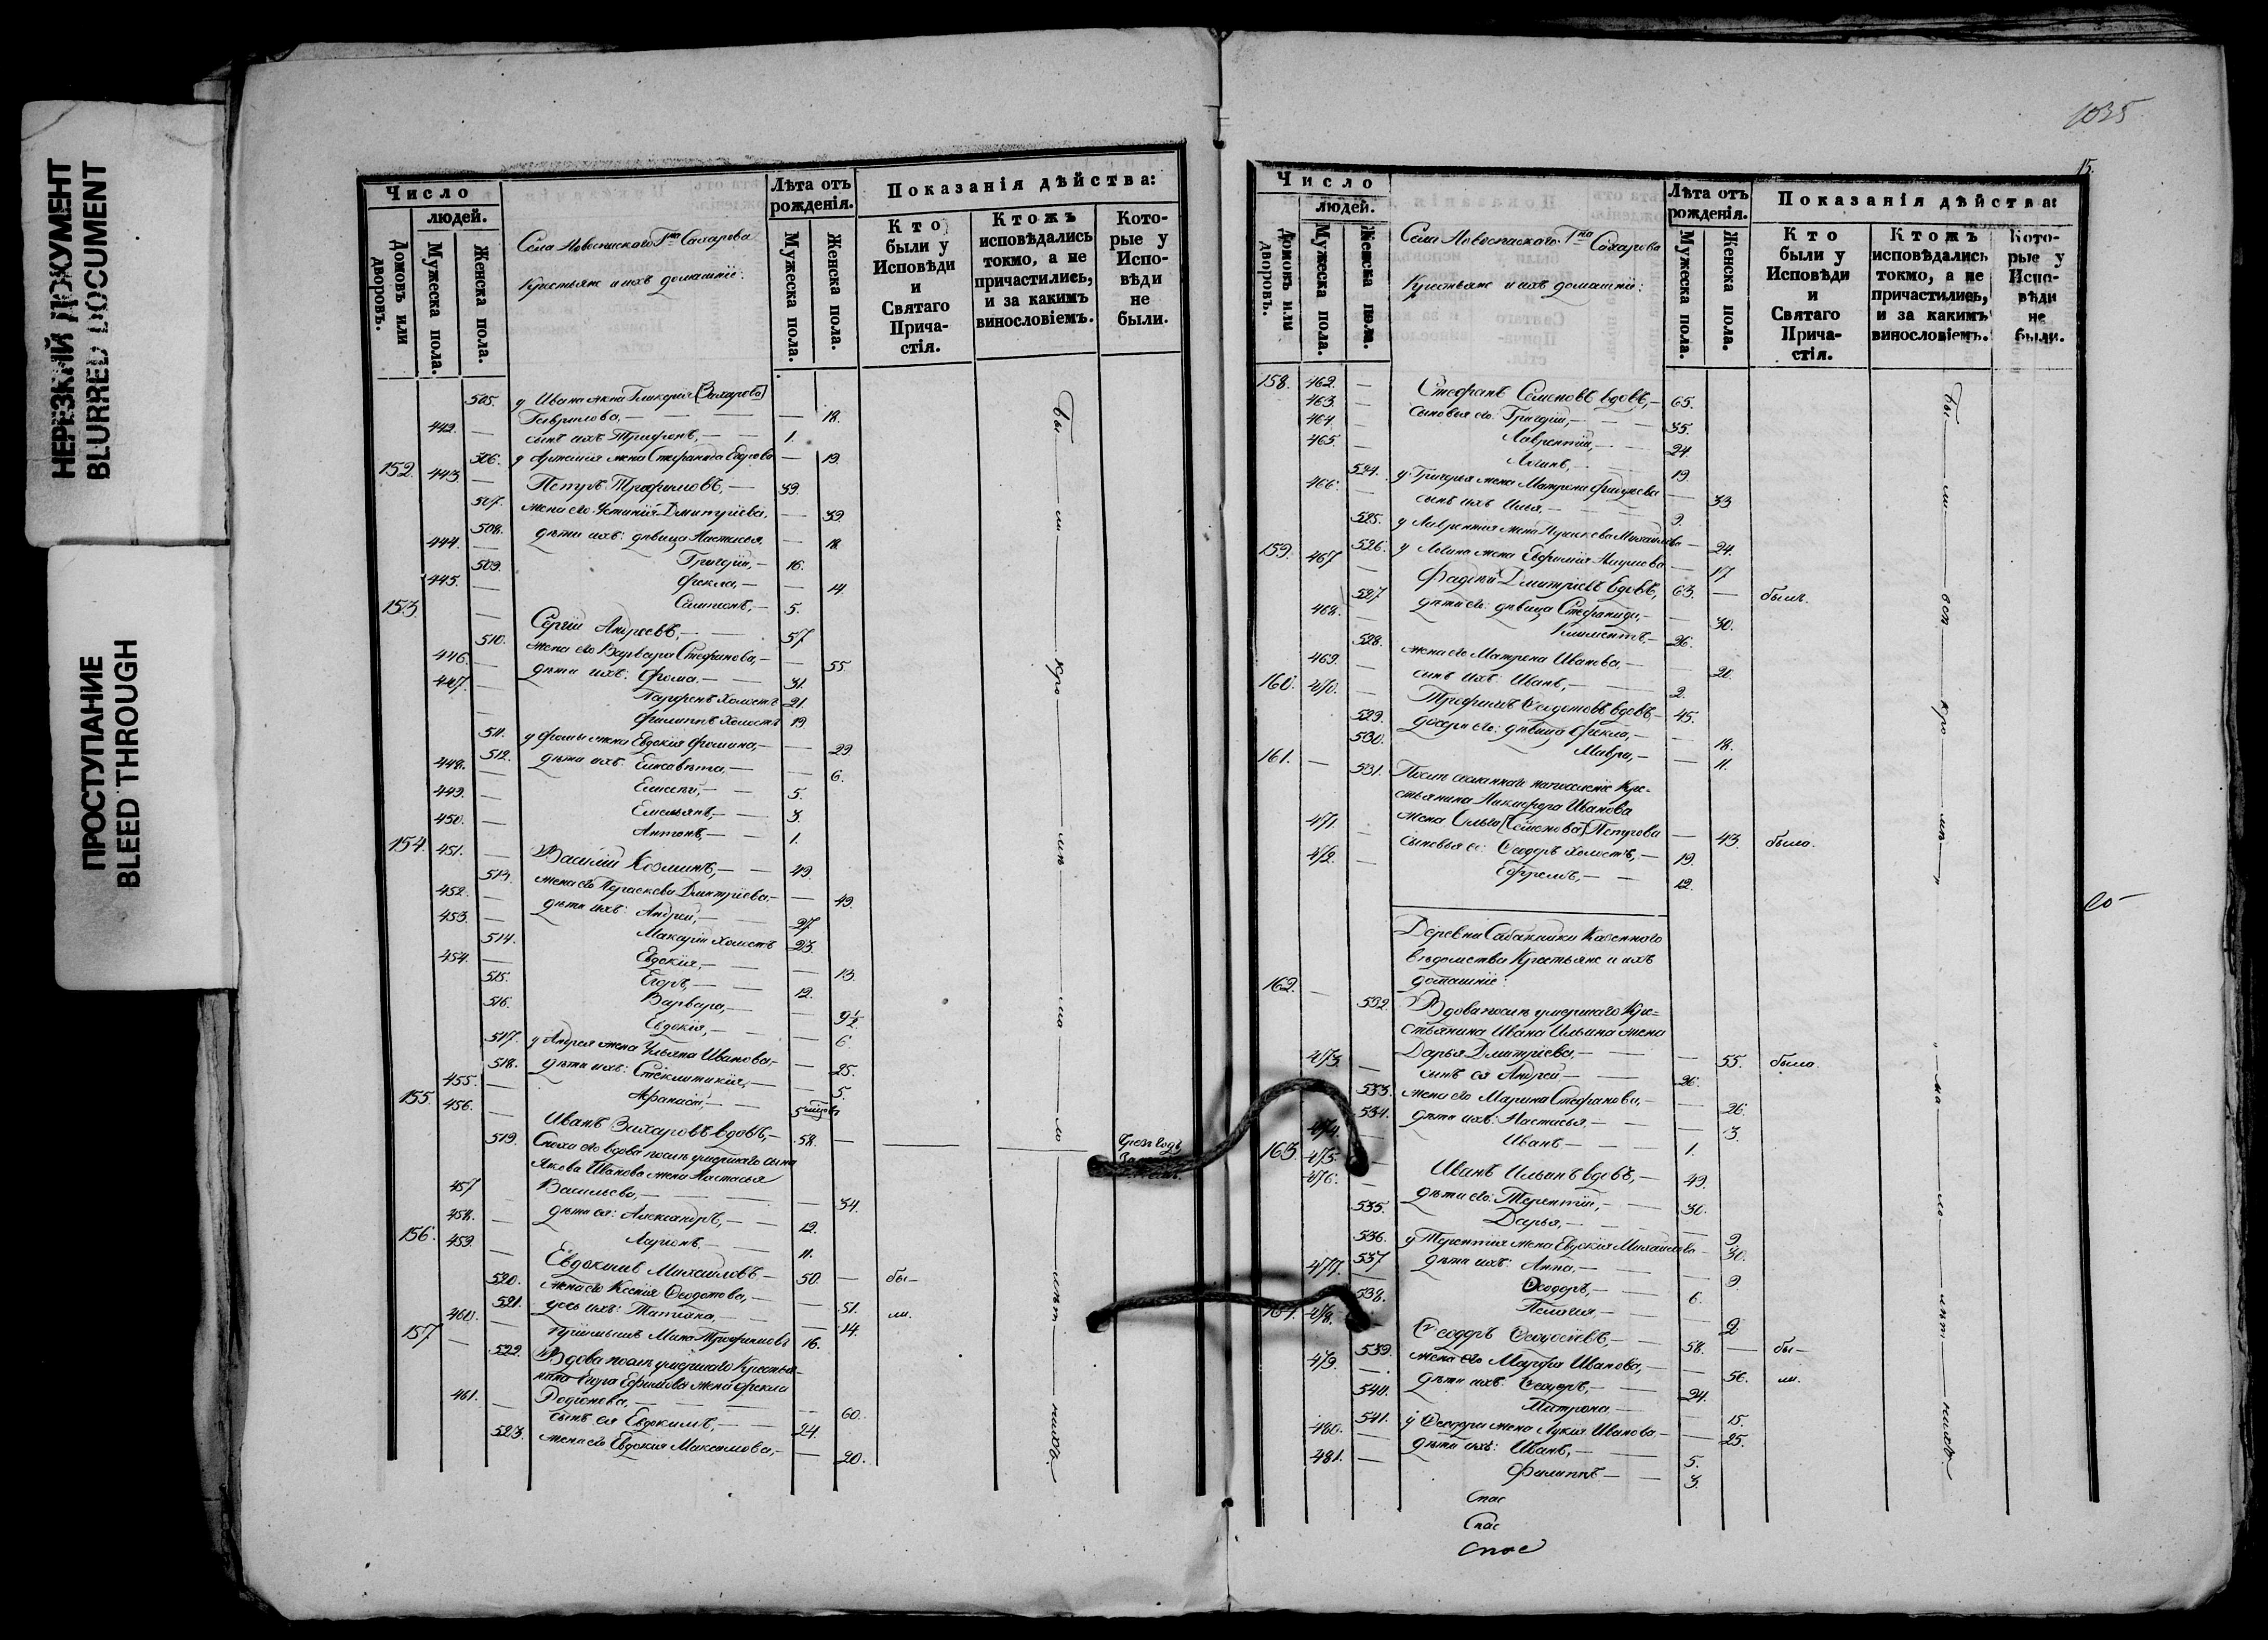 НЕРЕЗКИЙ ДОКУМЕНТ
BLURRED DOCUMENT
ПРОСТУПАНИЕ
BLEED THROUGH
Число
людей.
Домовъ или дворовъ.
Мужеска пола.
Женска пола.
Крестьяне и ихъ домашніе:
Лѣта отъ рожденія.
Мужеска пола.
Женска пола.
Показанія дѣйства:
Кто были у Исповѣди и Святаго Причастія.
Ктожъ исповѣдались токмо, а не причастились, и за какимъ винословіемъ.
Которые у Исповѣди не были.
505. у Ивана жена Гликерія (Захарова)
Гаврилова, — 18.
442. — сынъ ихъ Трифонъ, — 1.
506. у Артемія жена Стефанида Егорова — 19.
152. 443. — Петръ Трофимовъ, — 39.
507. жена его Устинія Дмитріева, — 39.
508. дѣти ихъ: дѣвица Настасья, — 18.
444. — Григорій, — 16.
509. Фекла, — 14.
445. — Сампсонъ, — 5.
153. — Сергій Андреевъ, — 57
510. жена его Варвара Стефанова, — 55
446. — дѣти ихъ: Фома, — 31.
447. — Парфенъ холостъ 21
— Филиппъ холостъ 19.
511. у Фомы жена Евдокія Фомина, — 29.
512. дѣти ихъ: Елисавета, — 6.
448. — Елисей, — 5.
449. — Емельянъ, — 3.
450. — Антонъ, — 1.
154. 451. — Василій Козминъ, — 49.
513. жена его Параскева Дмитріева, — 49.
452. — дѣти ихъ: Андрей, — 27.
453. — Макарій холостъ 23.
514. Евдокія, — 13.
454. — Егоръ, — 12.
515. Варвара, — 9½
516. Евдокія, — 6
517. у Андрея жена Ульяна Иванова, — 25.
518. дѣти ихъ: Синклитикія, — 5.
455. — Афанасій, —
155. 456. — Иванъ Захаровъ вдовъ, — 58. —
519. Сноха его вдова послѣ умершаго сына
Якова Иванова жена Настасья
Васильева, — 34.
457 — дѣти ея: Александръ, — 12.
458. — Ларіонъ, — 11.
156. 459. — Евдокимъ Михайловъ — 50. — бы—
520. жена его Ксенія Ѳеодотова, — 51. ли.
521. дочь ихъ: Татіана, — 14.
460. — Пріемышъ Мина Трофимовъ 16.
157 — 522. Вдова послѣ умершаго Крестья-
нина Егора Ефимова жена Фекла
Родіонова, — 60.
461. — сынъ ея Евдокимъ, — 24.
523. жена его Евдокія Максимова, — 20.
бы — ли — вси — кро — мѣ — ма — ло — лѣт — нихъ.
1035
15.
Число
людей.
Домовъ или дворовъ.
Мужеска пола.
Женска пола.
Села Новоспаскаго Гна Сахарова
Крестьяне и ихъ домашніе:
Лѣта отъ рожденія.
Мужеска пола.
Женска пола.
Показанія дѣйства:
Кто были у Исповѣди и Святаго Причастія.
Ктожъ исповѣдались токмо, а не причастились, и за какимъ винословіемъ.
Которые у Исповѣди не были.
158. 462. — Стефанъ Семеновъ вдовъ, — 65.
463. — сыновья его: Григорій, — 35.
464. — Лаврентій, — 24.
465. — Логинъ, — 19
524. у Григорья жена Матрена — 33
466. — сынъ ихъ Илья, — 9.
525. у Лаврентія жена Параскева Михайлова — 24.
526. у Логина жена Евфимія — 17
159. 467 — Фадѣй Дмитріевъ вдовъ, 63. — былъ.
527 дѣти его: дѣвица Стефанида, — 30.
468. — Климентъ, — 26.
528. жена его Матрена Иванова, — 20.
469. — сынъ ихъ: Иванъ, — 2.
160. 470. — Трофимъ Ѳедотовъ вдовъ, — 45.
529. дочери его: дѣвица Фекла, — 18.
530. Мавра, — 11.
161. — 531. Послѣ сосланнаго на поселеніе Кре-
стьянина Никифора Иванова
жена Ольга (Семенова) Петрова — 43. была.
471. — сыновья ея: Ѳеодоръ холостъ, — 19.
472. — Ефремъ, — 12.
Деревни Сабакайки Казеннаго
вѣдомства Крестьяне и ихъ
домашніе:
162. — 532. Вдова послѣ умершаго Кре=
стьянина Ивана Ильина жена
Дарья Дмитріева, — 55. была.
473. — сынъ ея Андрей — 26.
533. жена его Марина Стефанова, — 26.
534. дѣти ихъ: Настасья, — 3.
474. — Иванъ — 1.
163. 475. — Иванъ Ильинъ вдовъ, — 49.
476. — дѣти его: Терентій, — 30.
535. Дарья, — 9
536. у Терентія жена Евдокія Михайлова — 30.
537 дѣти ихъ: Анна, — 9
477. — Ѳеодоръ, — 6.
538. Пелагія, — 2
164. 478. — Ѳеодоръ Ѳеодосіевъ, — 58. — бы—
539. жена его Марфа Иванова, — 56. ли.
479. — дѣти ихъ: Ѳеодоръ, — 24.
540. Матрона, — 15.
541. у Ѳеодора жена Лукія Иванова — 25.
480. — дѣти ихъ: Иванъ, — 5.
481. — Филиппъ — 3.
бы — ли — вси — кро — мѣ — ма — ло — лѣт — нихъ.
Спас
Спас
Спас